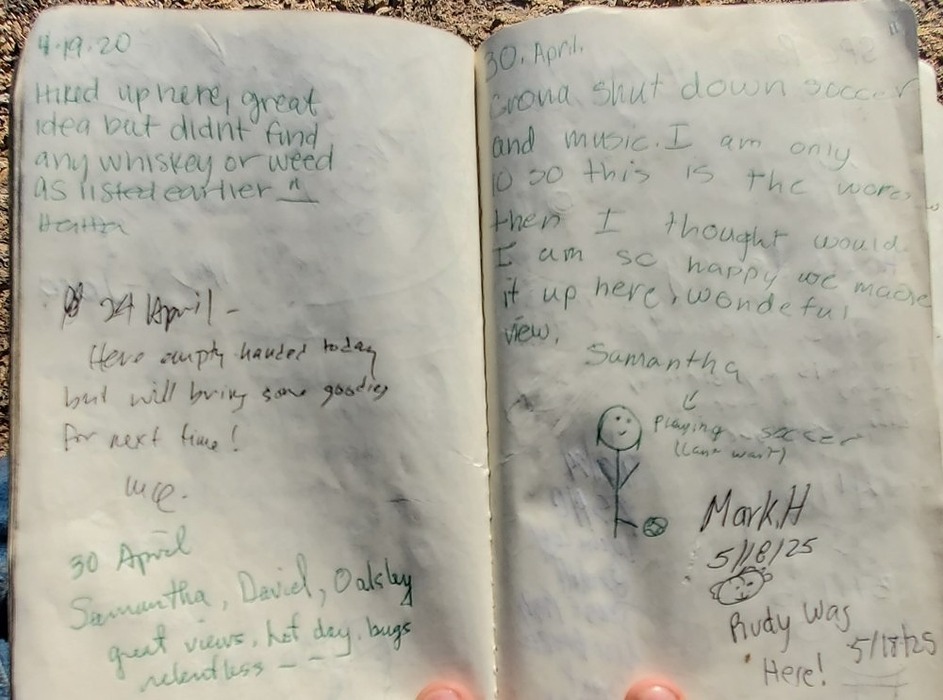 4.19.20
Hiked up here, great
idea but didnt find
any whiskey or weed
as listed earlier
Heather
24 April -
Here empty handed today
but will bring some goodies
for next time!
30 April
Samantha, Daviel, Oakley
great views, hot day, bugs
relentless - - -
30. April.
Crona shut down soccer
and music. I am only
10 so this is the wores
then I thought would.
I am so happy we made
it up here, wondeful
view.
Samantha
Playing soccer
(Cant wait)
Mark.H
5/18/25
Rudy Was
Here!
5/18/25